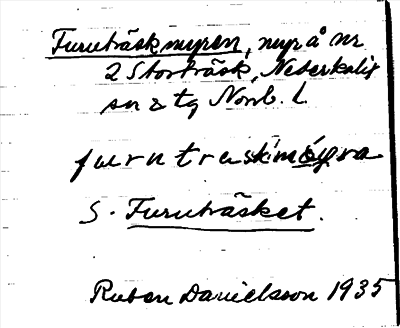 Furuträskmyren, myr å nr
2 Storträsk, Nederkalix
sn & tg Norrb. l.
furutraskimöyra
S. Furuträsket.
Ruben Danielsson 1935